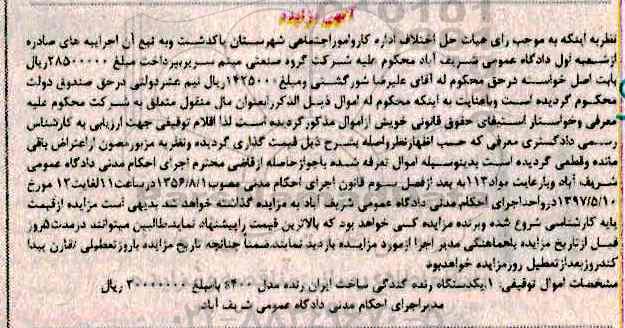 آگهی مزایده
نظربه اینکه به موجب رای هیات حل اختلاف اداره کاروامورراجتماعی شهرستان پاکدشت وبه تبع آن اجراییه های صادره
ازشعبه اول دادگاه عمومی شریف آباد محکوم علیه شرکت گروه صنعتی میثم سریربپرداخت مبلغ ۲۸۵۰۰۰۰۰ریال
بابت اصل خواسته درحق محکوم له آقای علیرضا شورگشتی ومبلغ۱۴۲۵۰۰۰ریال نیم عشردولتی درحق صندوق دولت
محکوم گردیده است وباعنایت به اینکه محکوم له اموال ذیل الذکررابعنوان مال منقول متعلق به شرکت محکوم علیه
معرفی وخواستار استیفای حقوق قانونی خویش ازاموال مذکورگردیده است لذا اقلام توقیفی جهت ارزیابی به کارشناس
رسمی دادگستری معرفی که حسب اظهارنظرواصله بشرح ذیل قیمت گذاری گردیده ونظریه مزبورمصون ازاعتراض باقی
مانده وقطعی گردیده است بدینوسیله اموال تعرفه شده باجوازحاصله ازقاضی محترم اجرای احکام مدنی دادگاه عمومی
شریف آباد وبارعایت مواد۱۱۳به بعد ازفصل سوم قانون اجرای احکام مدنی مصوب۱۳۵۶/۸/۱درساعت۱۱لغایت۱۲ مورخ
۱۳۹۷/۵/۱۰درواحداجرای احکام مدنی دادگاه عمومی شریف آباد به مزایده گذاشته خواهد شد بدیهی است مزایده ازقیمت
پایه کارشناسی شروع شده وبرنده مزایده کسی خواهد بود که بالاترین قیمت راپیشنهاد نمایدطالبین میتوانند درمدت۵روز
قبل ازتاریخ مزایده باهماهنگی مدیر اجرا ازمورد مزایده بازدید نمایند.ضمناً چنانچه تاریخ مزایده باروزتعطیلی تقارن پیدا
کندروزبعدازتعطیل روزمزایده خواهدبود
مشخصات اموال توقیفی: ۱.یکدستگاه رنده گندگی ساخت ایران رنده مدل ۴۰۰ه بامبلغ ۳۰۰۰۰۰۰۰ ریال
مدیراجرای احکام مدنی دادگاه عمومی شریف آباد